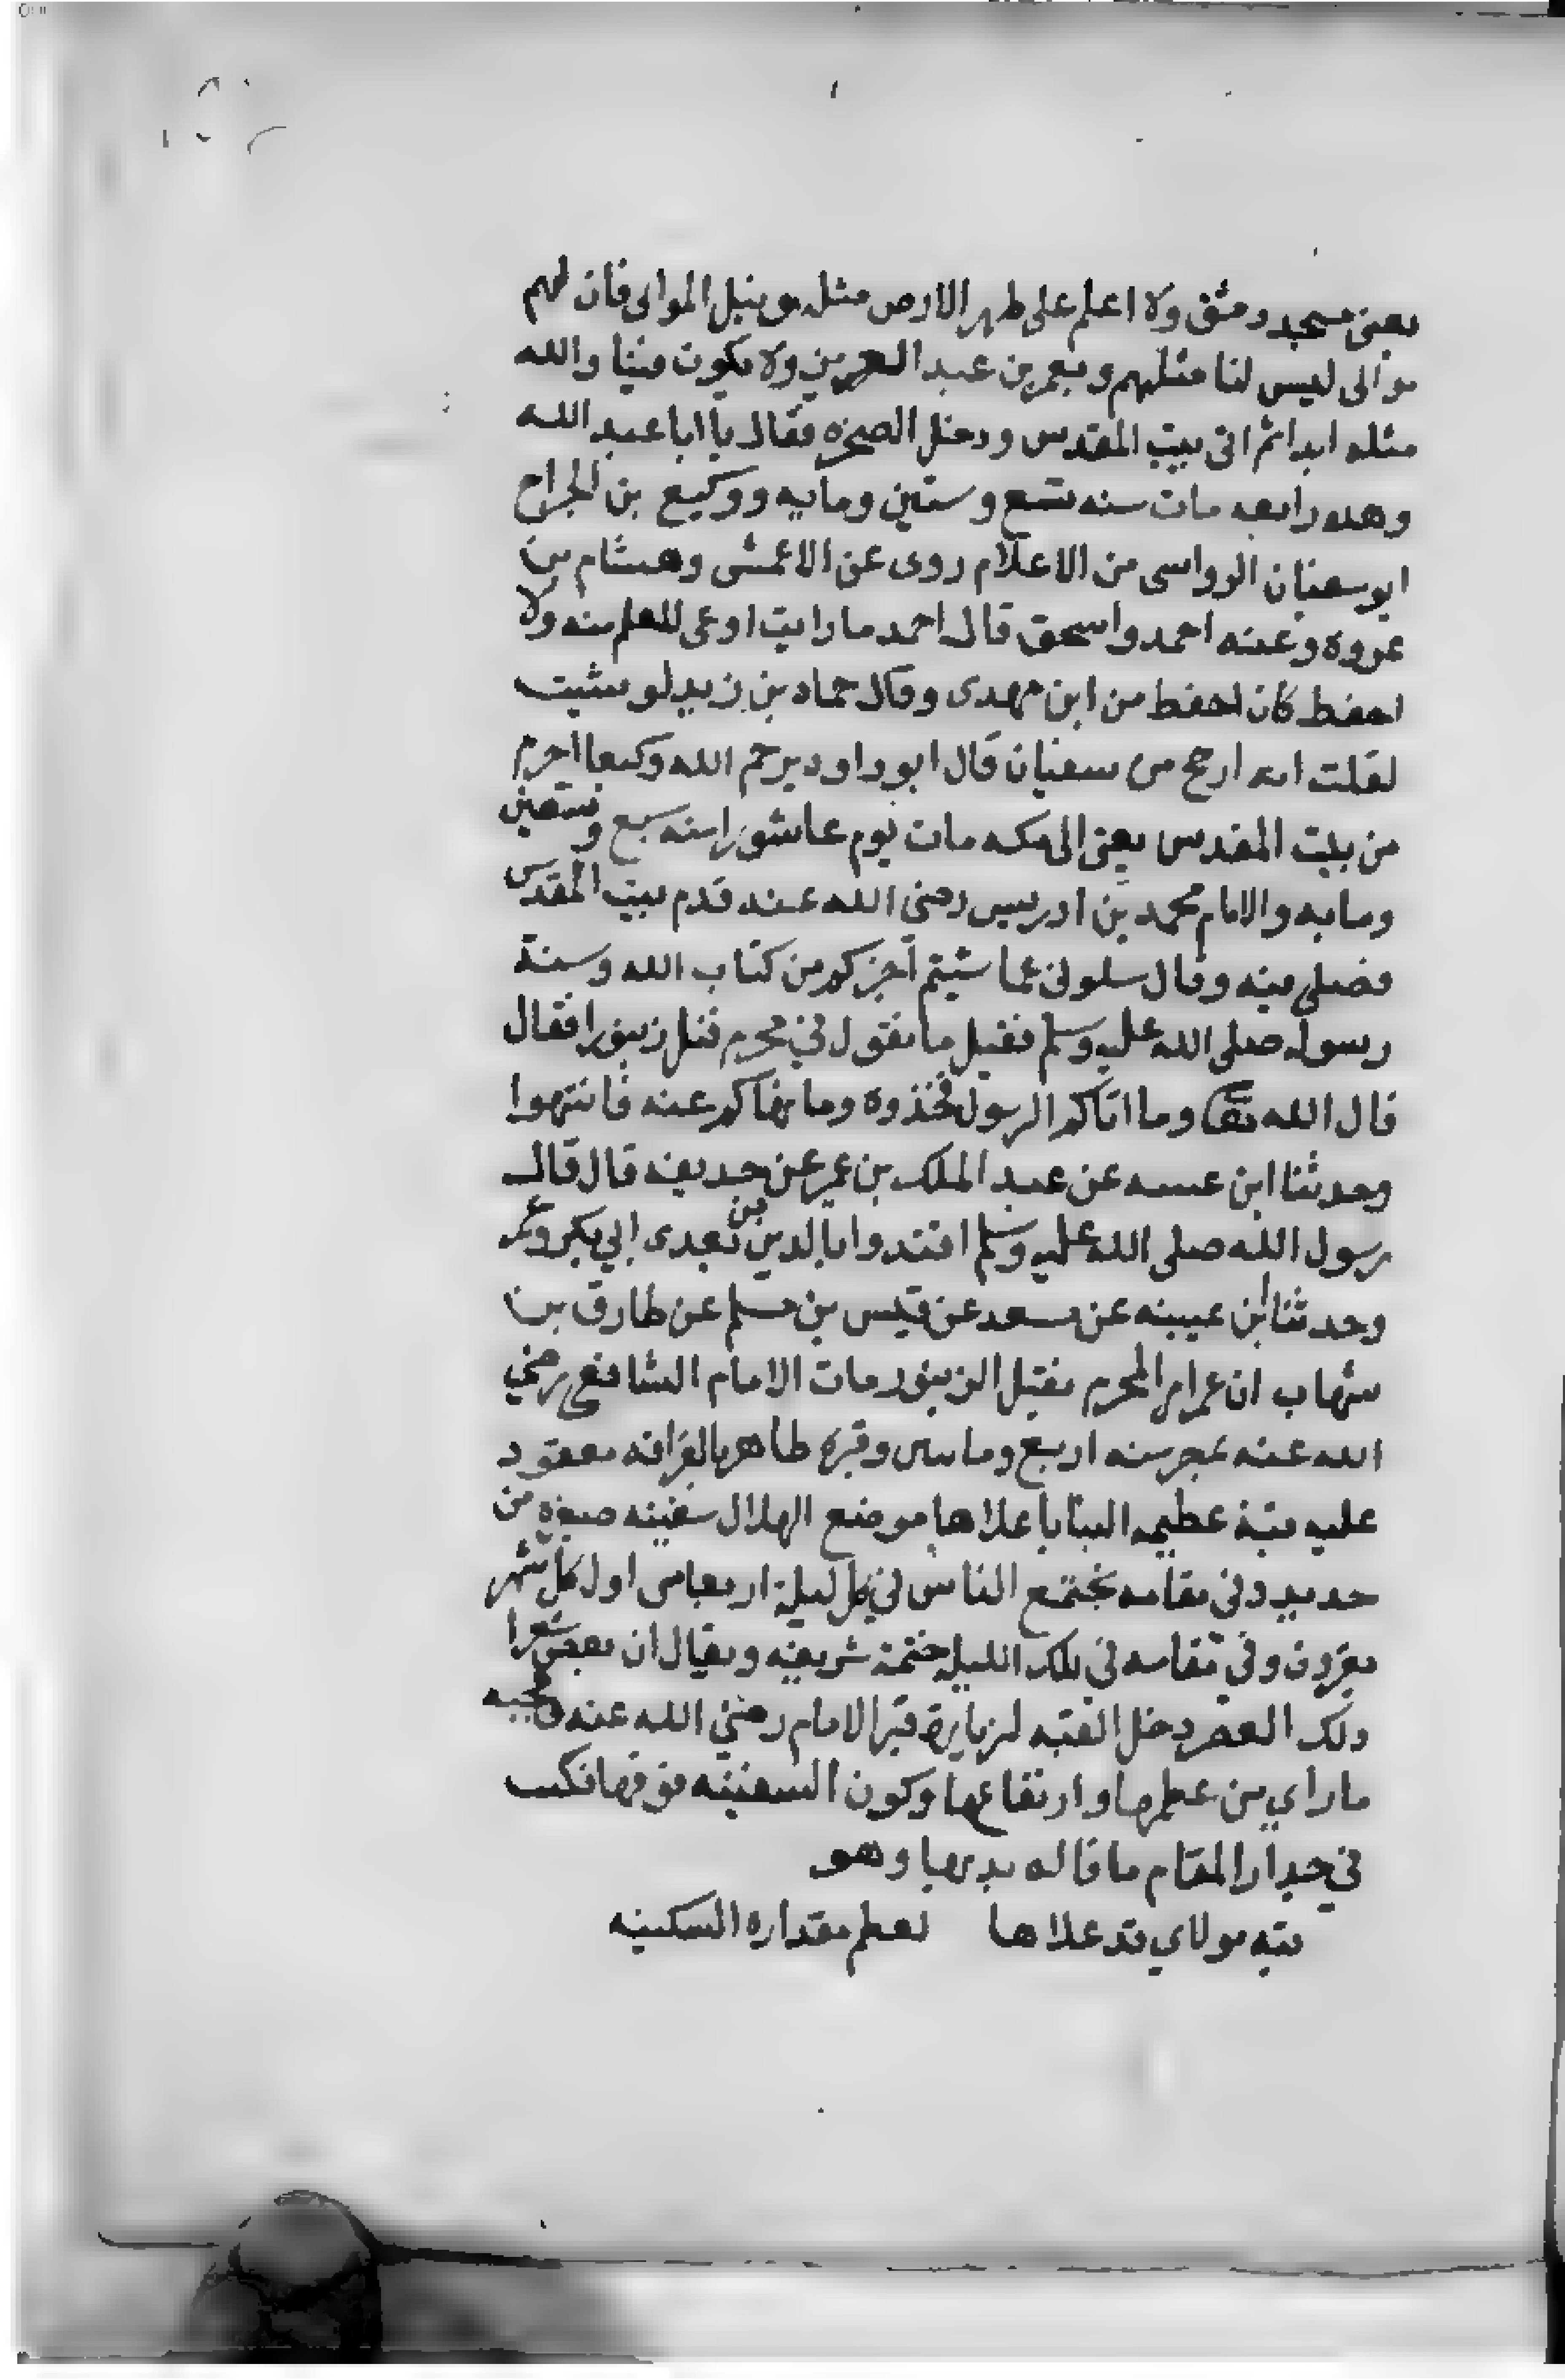 يعنى مسجد دمشق ولا اعلم على ظهر الارض مثله وبنبل الموالى فان لهم
موالى ليس لنا مثلهم وبعمر بن عبد العزيز ولا يكون فينا والله
مثله ابدا ثم اتى بيت المقدس ودخل الصخره فقال يا ابا عبد الله
وهذه رابعه مات سنه تسع وستين ومايه ووكيع بن الجراح
ابو سفيان الرواسى من الاعلام روى عن الاعمش وهشام بن
عروه وعنه احمد واسحق قال احمد ما رايت اوعى للعلم منه ولا
احفظ كان احفظ من ابن مهدى وقال حماد بن زيد لو شيت
لقلت انه ارجح من سفيان قال ابو داود يرحم الله وكيعا احرم
من بيت المقدس يعنى الى مكه مات يوم عاشورا سنه سبع وتسعين
ومايه والامام محمد بن ادريس رضى الله عنه قدم بيت المقدس
فصلى فيه وقال سلونى عما شيتم اخبركم من كتاب الله وسنة
رسوله صلى الله عليه وسلم فقيل ما تقول في محرم قتل زنبورا فقال
قال الله تعالى وما اتاكم الرسول فخذوه وما نهاكم عنه فانتهوا
وحدثنا ابن عيينه عن عبد الملك بن عمير عن حديفه قال قال
رسول الله صلى الله عليه وسلم اقتدوا بالدين من بعدى ابي بكر وعمر
وحدثنا ابن عيينه عن مسعد عن قيس بن مسلم عن طارق بن
شهاب ان عمر امر المحرم بقتل الزنبور مات الامام الشافعى رضي
الله عنه بمصر سنه اربع وماتىن وقبره ظاهر بالقرافه معقود
عليه قبة عظيمه البنا باعلاها موضع الهلال سفينه صغيره من
حديد وفى مقامه يجتمع الناس في كل ليلة اربعا من اول كل شهر
يقرون وفى مقامه فى تلك الليله ختمة شريفه ويقال ان بعض شعرا
ذلك العصر دخل القبه لزيارة قبر الامام رضي الله عنه واعجبه
ما راي من عظمها وارتفاعها وكون السفينه فوقها فكتب
في جدار المقام ما قاله بديها وهو
قبه مولاي قد علاها لعظم مقداره السكينه